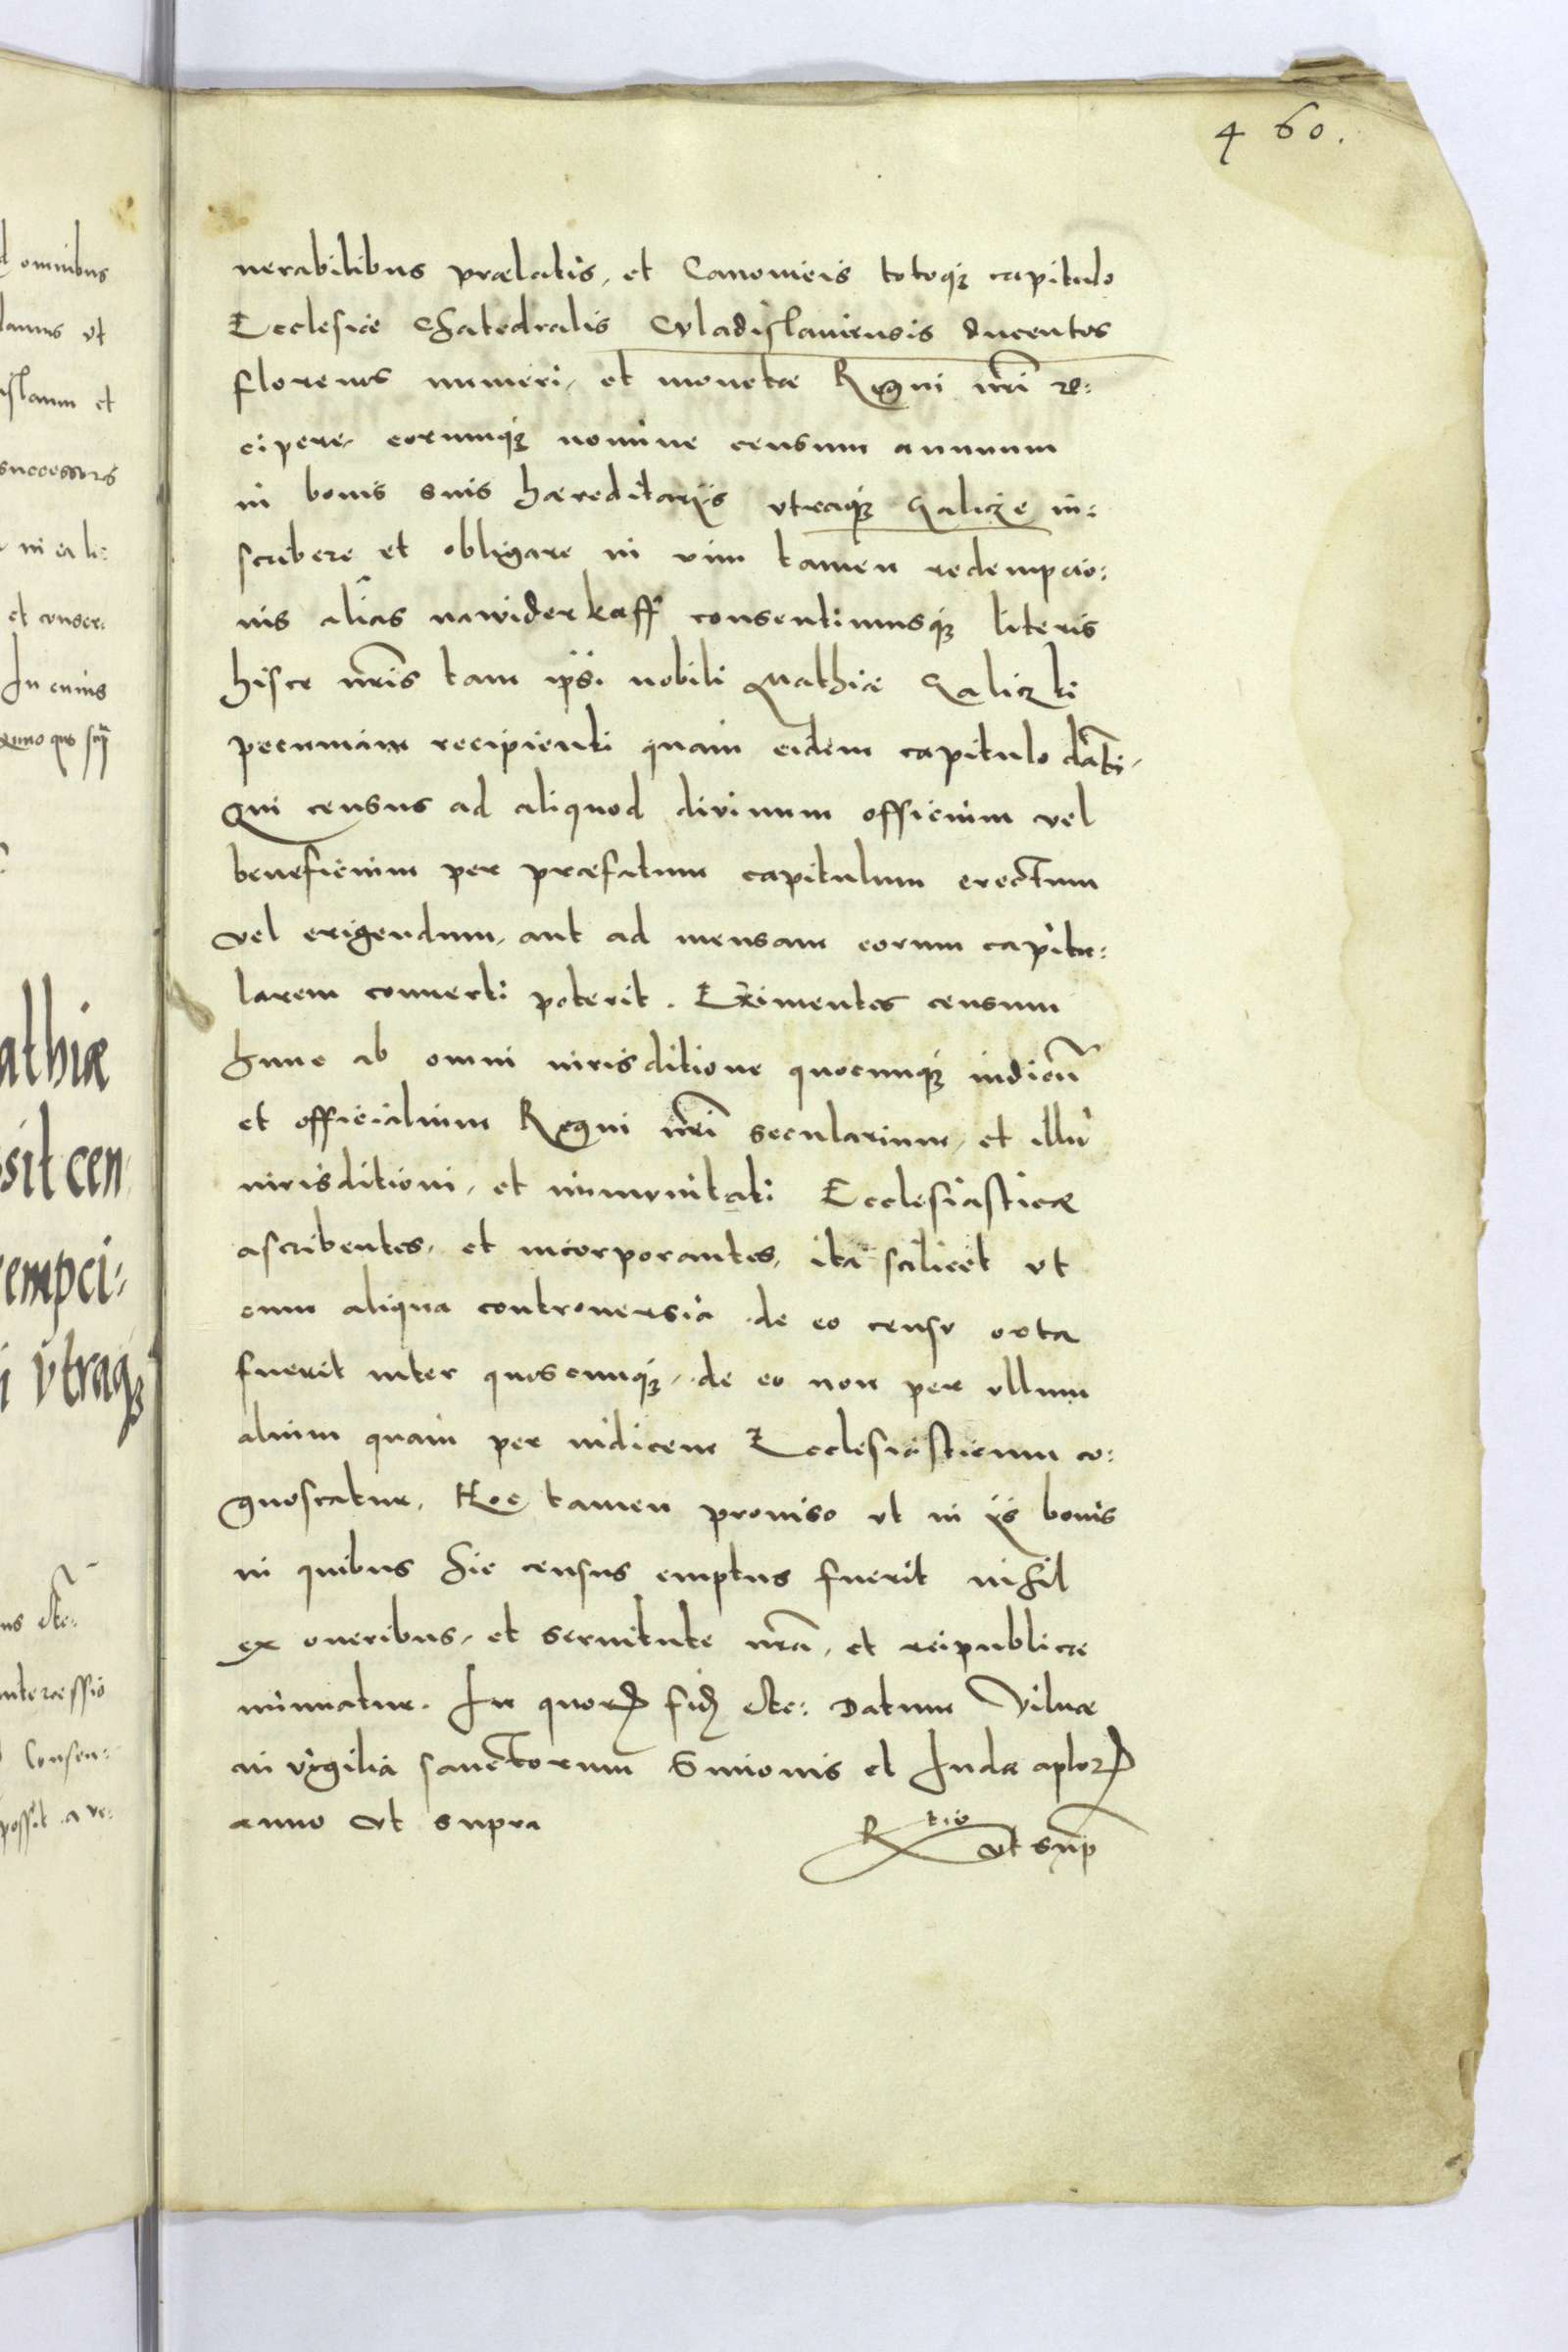 460.
nerabilibus prælatis, et Canonicis totoq; capitulo
Ecclesiæ Chatedralis Culadislauiensis ducentos
florenos numeri, et monetæ Regni nr̃i re:
cipere, eorumq; nomine censum annuum
in bonis suis hæreditarijs vtraq; Galicze in:
scribere et obligare in vim tamen redempcio:
nis alias nawiderkaff consentimusq; literis
hisce nr̃is tam ipsi nobili Mathiæ Galiczki
pecuniam recipienti quam eidem capitulo danti,
Qui census ad aliquod diuinum officium vel
beneficium per præfatum capitulum erectum
vel erigendum, aut ad mensam eorum capitu:
larem conuerti poterit. Eximentes censum
hunc ab omni iurisditione quocunq; iudicũ
et officialium Regni nr̃i secularium, et illũ
iurisditioni, et immunitati Ecclesiasticæ
ascribentes, et incorporantes, ita scilicet vt
cum aliqua controuersia de eo censu orta
fuerit inter quoscunq;, de eo non per vllum
alium quam per iudicem Ecclesiasticum co:
gnoscatur, Hoc tamen prouiso vt in ijs bonis
in quibus hic census emptus fuerit nihil
ex oneribus, et seruitute nr̃a, et reipublicæ
minuatur. In quorꝝ fidẽ etc: Datum Vilnæ
in vigilia sanctorum Simonis et Iudæ aplorꝝ
anno vt supra
Rtio vt sup̃
d omnibus
lamus vt
islaum et
successores
in ea li:
et conser:
In cuius
athiæ
sit cen
empci:
i vtraq;
us etc:
intercessio
Consen:
possit a ve: